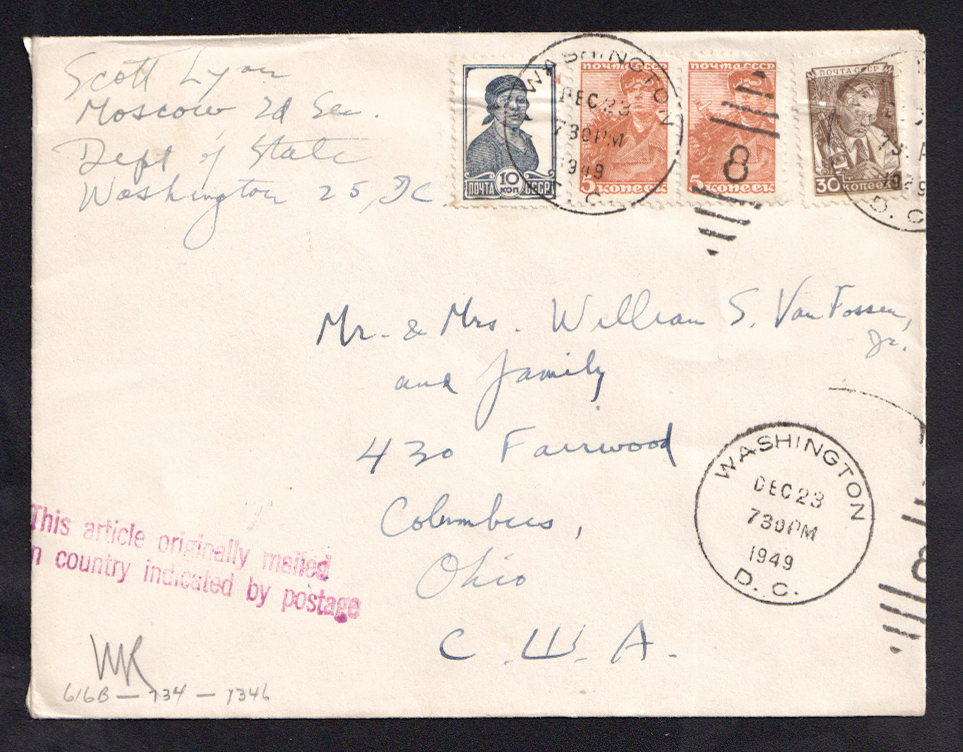 Scott Lyon
Moscow 2d Sec.
Dept of State
Washington 25, DC
10
КОП
ПОЧТА СССР
ПОЧТА СССР
5 КОПЕЕК
ПОЧТА СССР
5 КОПЕЕК
ПОЧТА СССР
30 КОПЕЕК
WASHINGTON
DEC 23
730PM
1949
D.C.
8
1949
D.C.
Mr. & Mrs. William S. Van Fossen,
Jr.
and family
430 Fairwood
Columbus,
Ohio
С. Ш. А.
WASHINGTON
DEC 23
730PM
1949
D.C.
This article originally mailed
n country indicated by postage
616B — 734 — 1346